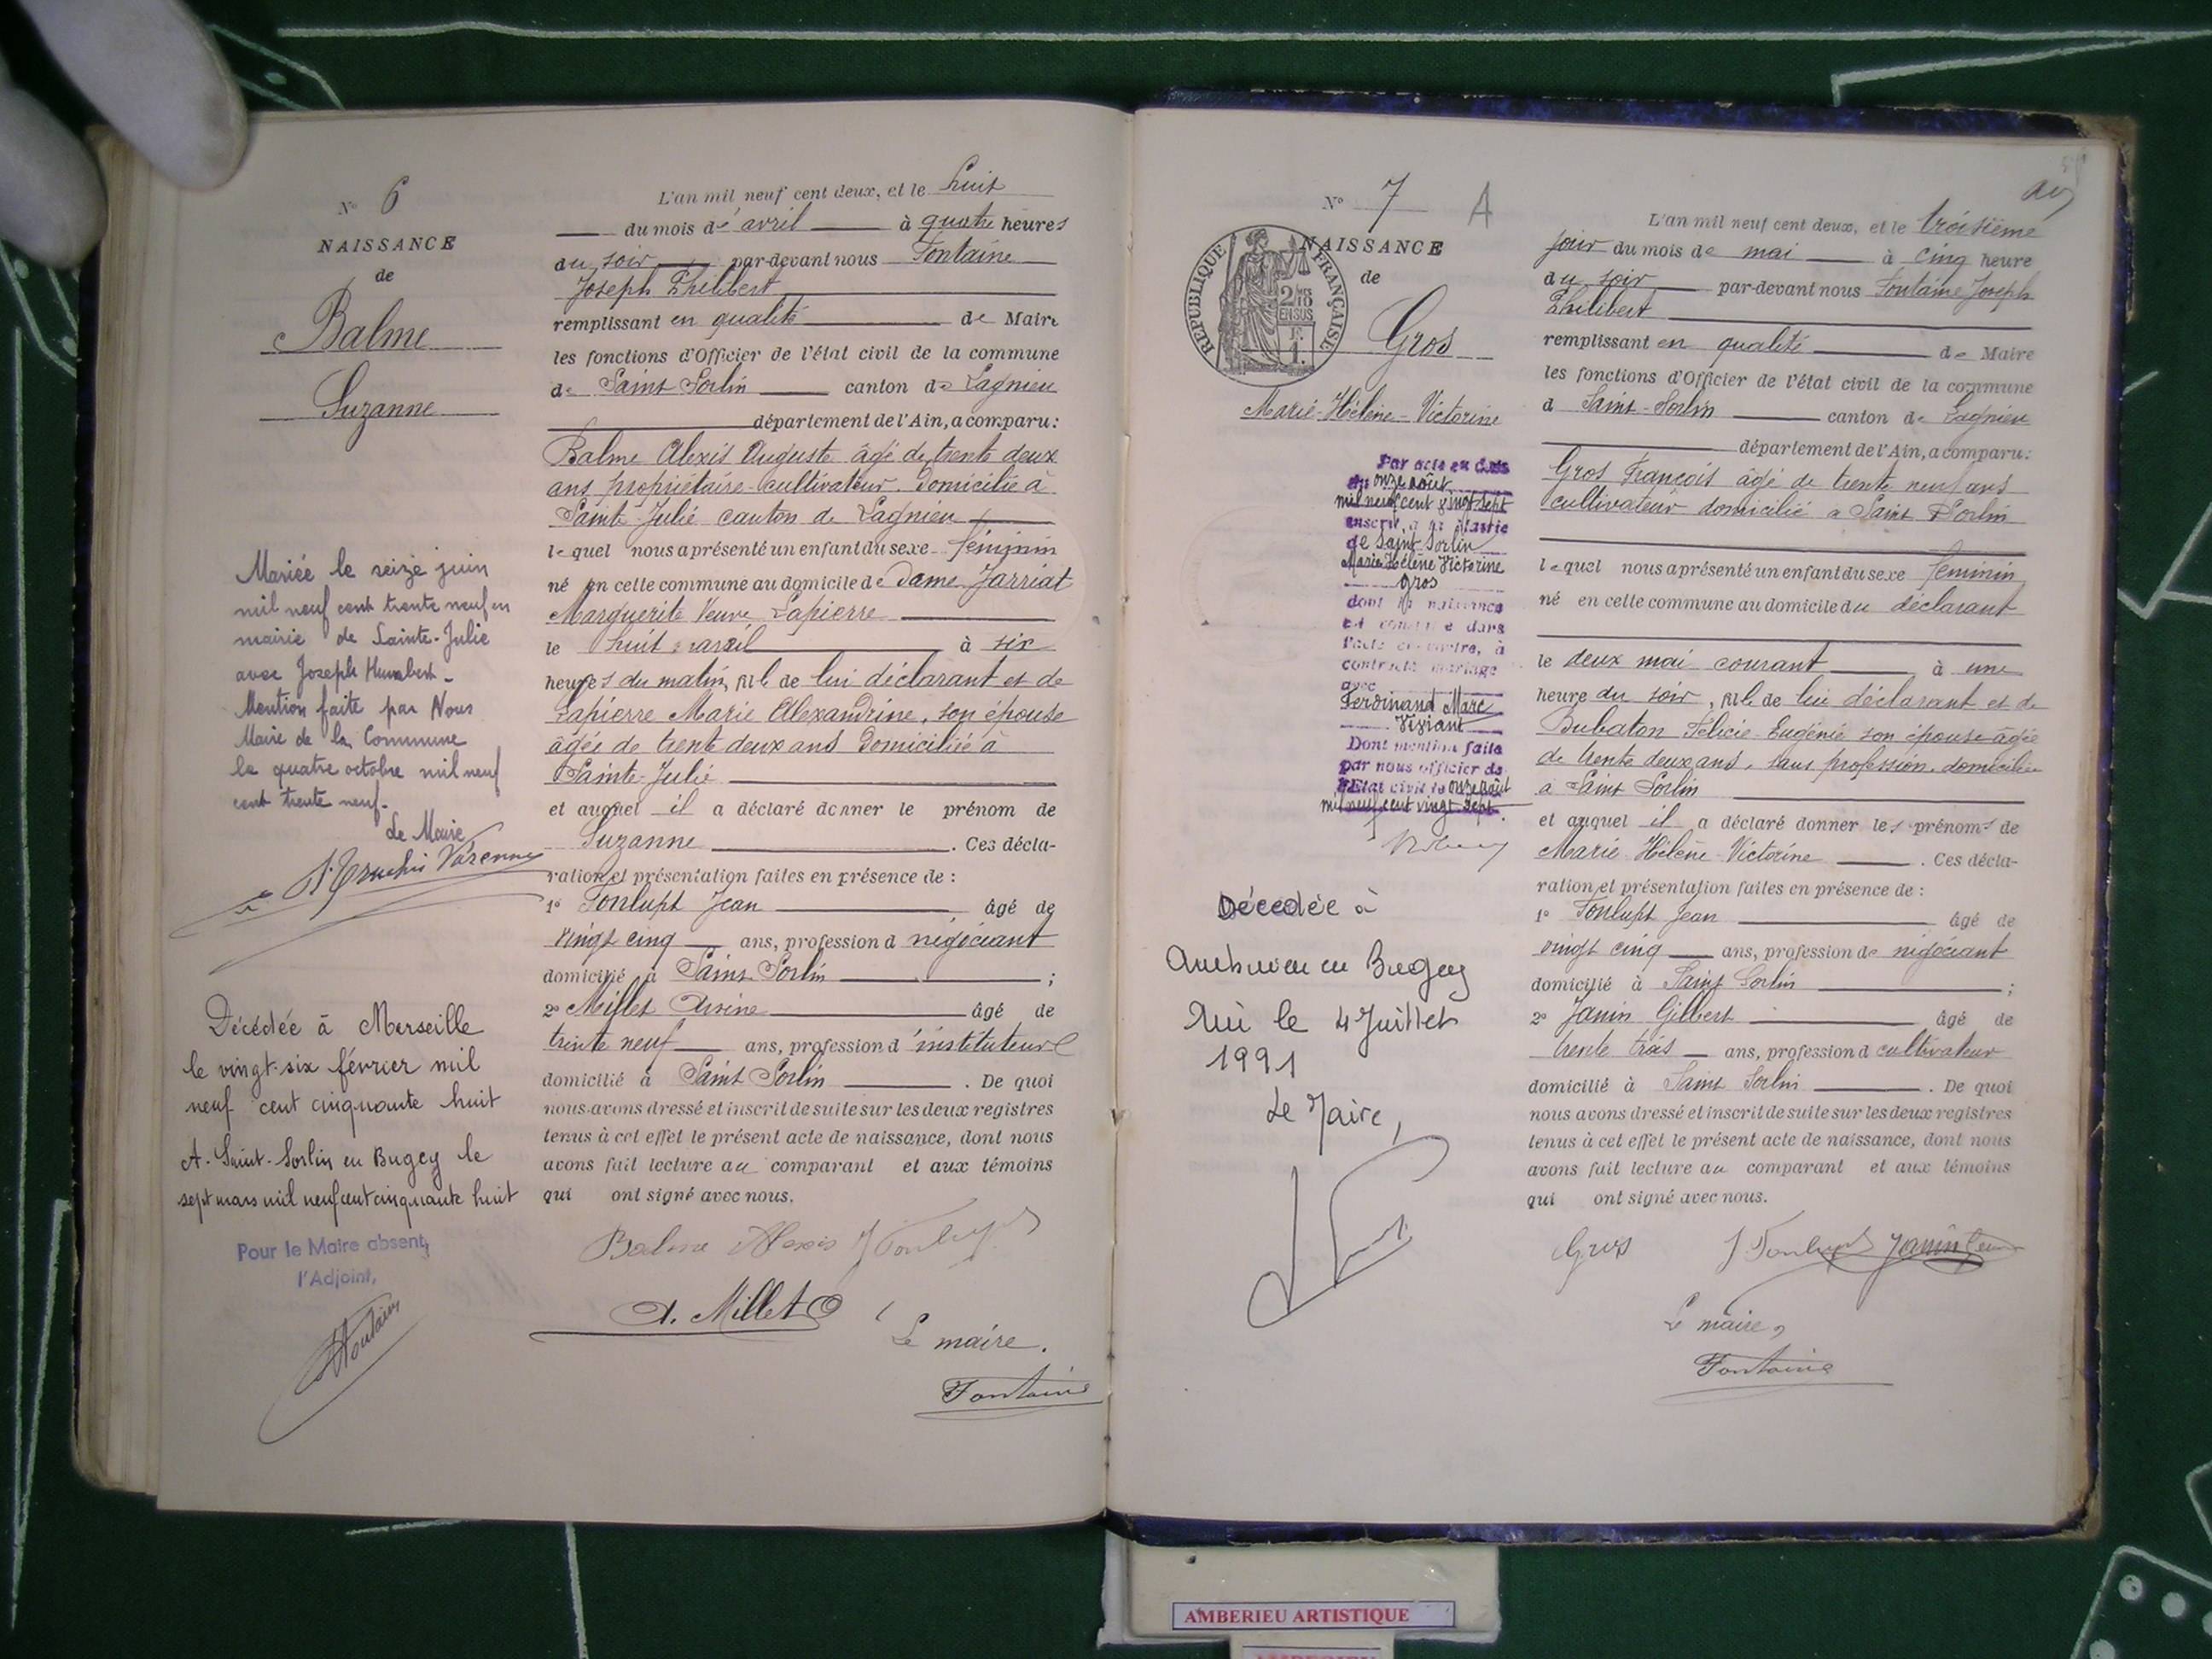 N° 6
NAISSANCE
de
Balme
Suzanne
Mariée le seize juin
mil neuf cent trente neuf en
mairie de Sainte-Julie
avec Joseph Humbert -
Mention faite par Nous
Maire de la Commune
le quatre octobre mil neuf
cent trente neuf.
Le Maire
Décédée à Marseille
le vingt-six février mil
neuf cent cinquante huit
A. Saint-Sorlin en Bugey le
sept mars mil neuf cent cinquante huit
Pour le Maire absent,
l'Adjoint,
L'an mil neuf cent deux, et le huit
du mois d'avril à quatre heures
du soir par-devant nous Fontaine
Joseph Philibert
remplissant en qualité de Maire
les fonctions d'Officier de l'état civil de la commune
de Saint Sorlin canton de Lagnieu
département de l'Ain, a comparu:
Balme Alexis Auguste âgé de trente deux
ans propriétaire-cultivateur. Domicilié à
Sainte-Julie canton de Lagnieu
lequel nous a présenté un enfant du sexe féminin
né en cette commune au domicile de Dame Jarriat
Marguerite Veuve Lapierre
le huit avril à six
heures du matin, fil de lui déclarant et de
Lapierre Marie Alexandrine, son épouse
âgée de trente deux ans Domiciliée à
Sainte-Julie
et auquel il a déclaré donner le prénom de
Suzanne. Ces décla-
ration et présentation faites en présence de :
1° Fonlupt Jean âgé de
vingt cinq ans, profession d négociant
domicilié à Saint Sorlin ;
2° Millet âgé de
trente neuf ans, profession d'instituteur
domicilié à Saint Sorlin. De quoi
nous avons dressé et inscrit de suite sur les deux registres
tenus à cet effet le présent acte de naissance, dont nous
avons fait lecture au comparant et aux témoins
qui ont signé avec nous.
Balme Alexis J Fonlupt
A. Millet
Le maire.
Fontaine
N° 7 A
NAISSANCE
de
REPUBLIQUE FRANÇAISE
Gros
Marie-Hélène-Victorine
Par acte en date
du onze août
mil neuf cent vingt sept
inscrit à la Mairie
de Saint Sorlin
Marie Hélène Victorine
Gros
dont la naissance
est constatée dans
l'acte ci-contre, a
contracté mariage
avec
Ferdinand Marc
Viviant
Dont mention faite
par nous officier de
l'Etat civil le onze août
mil neuf cent vingt sept.
Décédée à
Ambérieu en Bugey
le 4 Juillet
1991
Le Maire,
L'an mil neuf cent deux, et le troisième
jour du mois de mai à cinq heure
du soir par-devant nous Fontaine Joseph
Philibert
remplissant en qualité de Maire
les fonctions d'Officier de l'état civil de la commune
d Saint-Sorlin canton de Lagnieu
département de l'Ain, a comparu:
Gros François âgé de trente neuf ans
cultivateur domicilié à Saint Sorlin
lequel nous a présenté un enfant du sexe féminin
né en cette commune au domicile du déclarant
le deux mai courant à une
heure du soir, fil de lui déclarant et de
Bubaton Félicie-Eugénie son épouse âgée
de trente deux ans, sans profession, domiciliée
à Saint Sorlin
et auquel il a déclaré donner les prénoms de
Marie-Hélène-Victorine. Ces décla-
ration et présentation faites en présence de :
1° Fonlupt Jean âgé de
vingt cinq ans, profession de négociant
domicilié à Saint Sorlin ;
2° Janin Gilbert âgé de
trente trois ans, profession d cultivateur
domicilié à Saint Sorlin. De quoi
nous avons dressé et inscrit de suite sur les deux registres
tenus à cet effet le présent acte de naissance, dont nous
avons fait lecture au comparant et aux témoins
qui ont signé avec nous.
Gros J Fonlupt Janin
Le maire,
Fontaine
AMBERIEU ARTISTIQUE